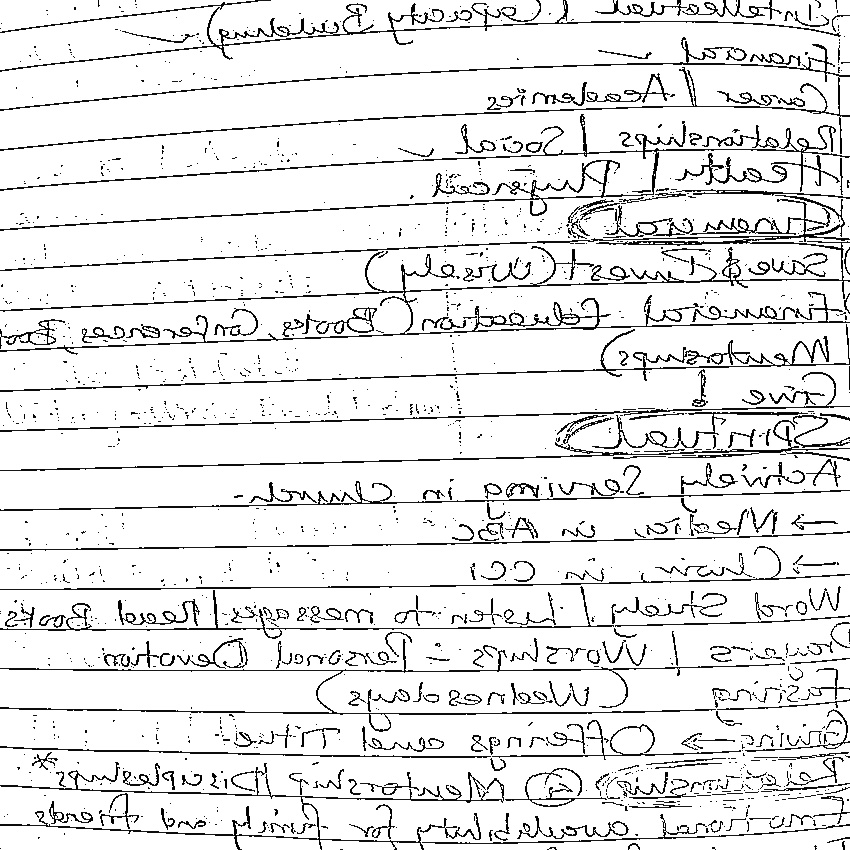 Intellectual (Capacity Building)
Financial
Career | Academics
Relationships | Social
Health | Physical.
Financial
Save & Invest (Wisely)
Financial Education (Books, Conferences,
Mentorships)
Give
Spiritual
Actively Serving in Church-
→ Media, in ABC
→ Choir, in CCI
Word Study | Listen to messages | Read Books
Prayers | Worships - Personal Devotion
Fasting (Wednesdays)
Giving → Offerings and Tithe
Relationship Mentorship | Discipleships*
Emotional availability for family and friends